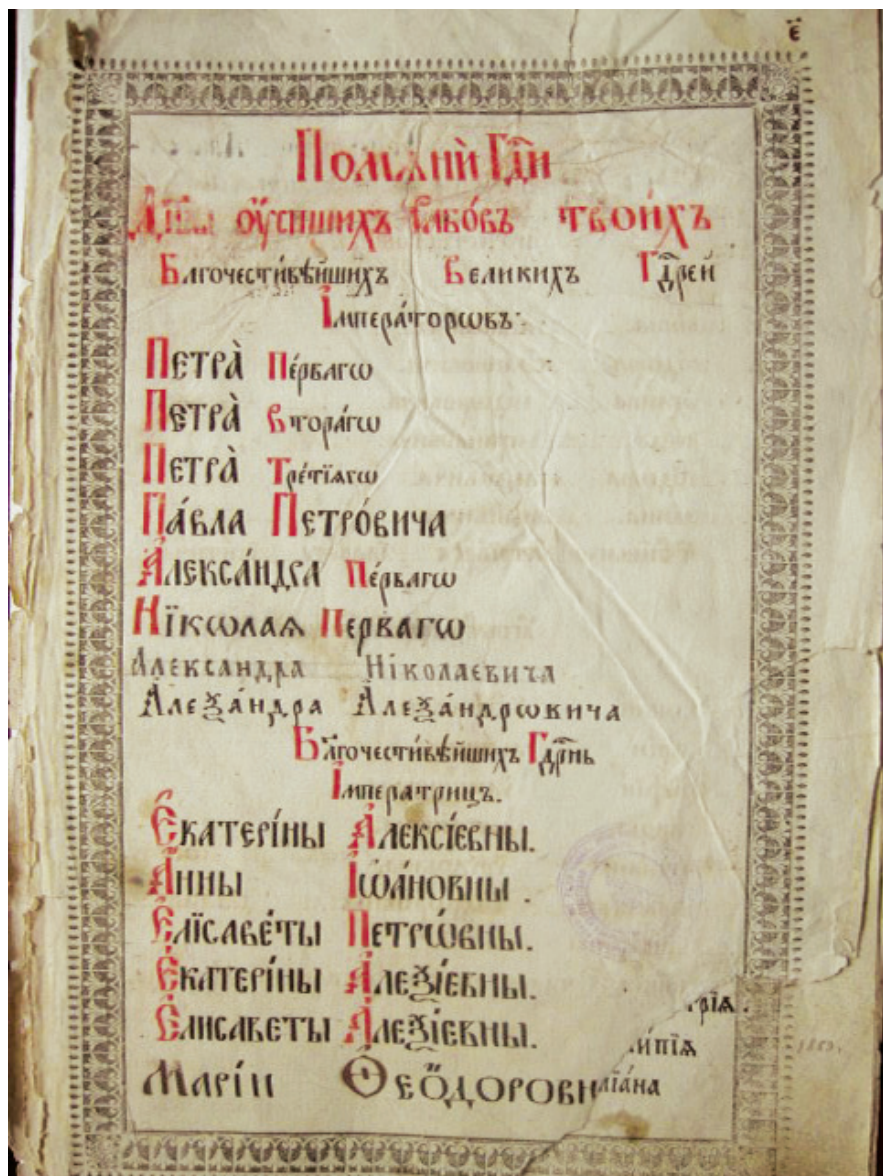 є҃
Помѧнѝ Гдⷭ҇и
оу҆сопшихъ рабѡ́въ твои́хъ
Благочести́вѣйшихъ Великихъ Гдⷭ҇рей
І҆мпера́торѡвъ:
Петра̀ Пе́рвагѡ
Петра̀ Втора́гѡ
Петра̀ Тре́тїѧгѡ
Па́вла Петро́вича
А҆лекса́ндра Пе́рвагѡ
Нїкѡлаѧ Перваго
Александра Нїколаевича
А҆леѯа́ндра А҆леѯа́ндрѡвича
Бл҃гочести́вѣйшихъ Гдⷭ҇рнь
І҆мператрицъ.
Е҆катері́ны А҆лексі́евны.
А҆нны І҆ѡа́новны.
Е҆лїсаве́ты Петрѡ́вны.
Е҆катері́ны А҆леѯі́евны.
Е҆лисаветы А҆леѯі́евны.
рїѧ.
и́пїѧ
Марїи Ѳеодоровн
лїа́на